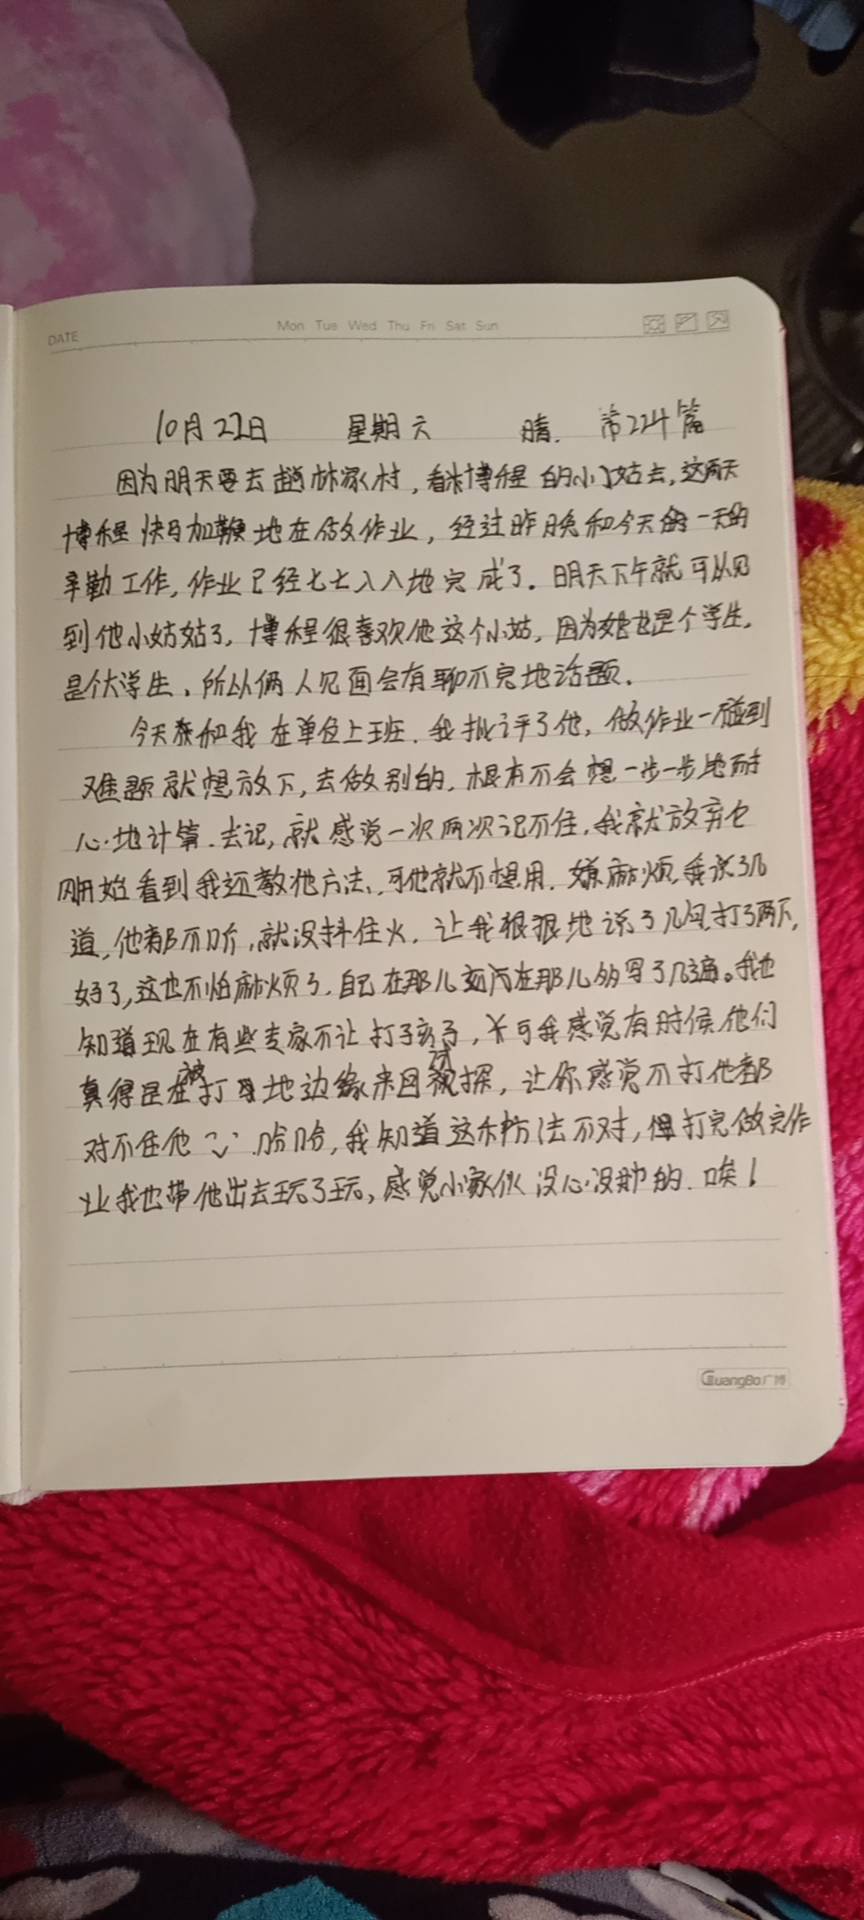 DATE Mon Tue Wed Thu Fri Sat Sun
10月22日 星期六 晴. 第224篇
因为明天要去赵林家村,看望博程的小姑去,这两天
博程快马加鞭地在做作业,经过昨晚和今天的一天的
辛勤工作,作业已经七七八八地完成了.明天下午就可以见
到他小姑姑了,博程很喜欢他这个小姑,因为她也是个学生,
是个大学生,所以俩人见面会有聊不完地话题.
今天和我在单位上班.我批评了他,做作业一碰到
难题就想放下,去做别的,根本不会想一步一步地耐
心地计算.去记,就感觉一次两次记不住,我就放弃
刚开始看到我还教他方法,可他就不想用.嫌麻烦,我说了几
道,他都不听,就没抖住火.让我狠狠地说了几句,打了两下,
好了,这也不怕麻烦了.自己在那儿写了几遍。我也
知道现在有些专家不让打孩子,可我感觉有时候他们
真得是在被打地边缘来回试探,让你感觉不打他都
对不住他 哈哈,我知道这方法不对,但打完做完作
业我也带他出去玩了玩,感觉小家伙没心没肺的.唉!
GuangBo广博